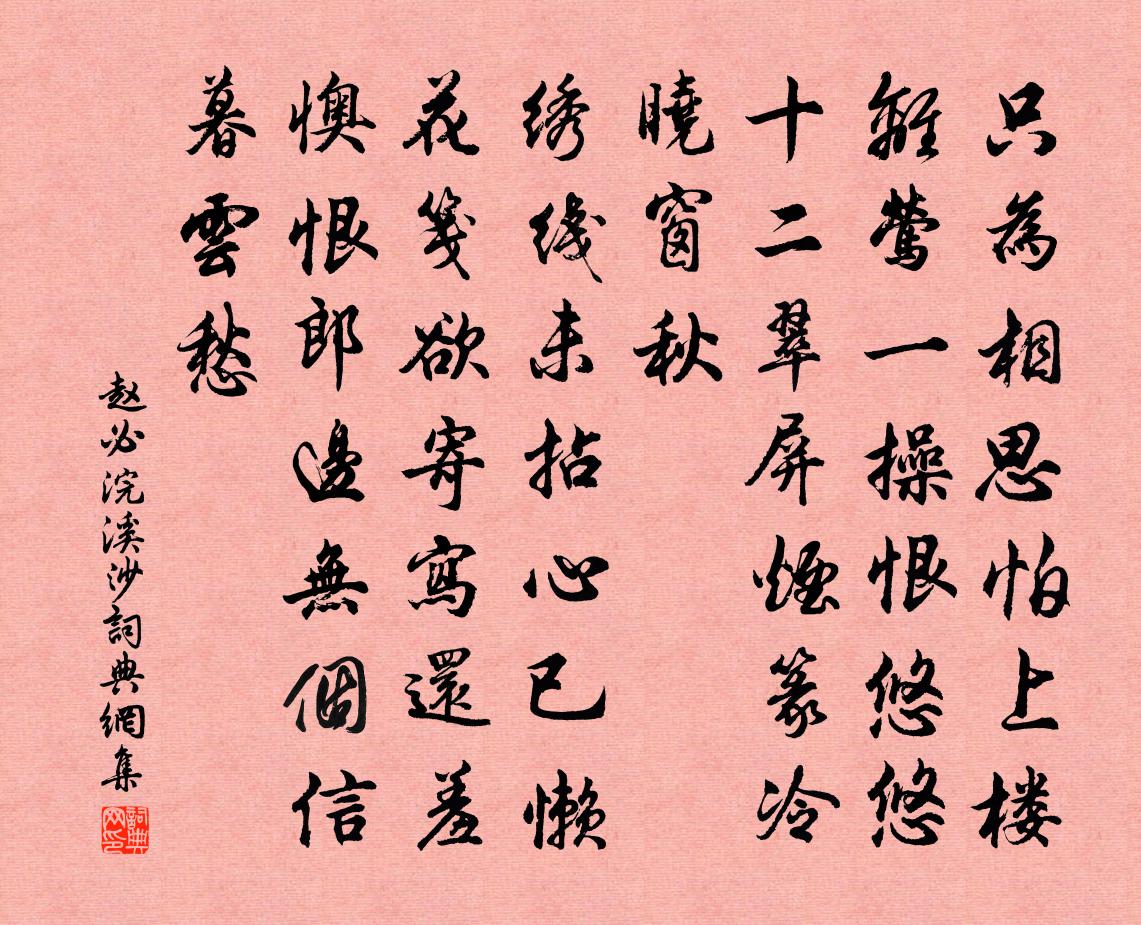 只為相思怕上楼
離鶯一操恨悠悠
十二翠屏煙篆冷
曉窗秋
綉綫未拈心已懶
花箋欲寄寫還羞
懊恨郎邊無個信
暮雲愁
赵必浣溪沙詞典網集
詞典网印